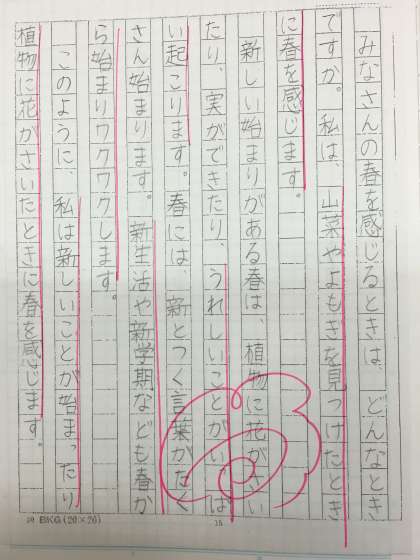 みなさんの春を感じるときは、どんなとき
ですか。私は、山菜やよもぎを見つけたとき
に春を感じます。
新しい始まりがある春は、植物に花がさい
たり、実ができたり、うれしいことがいっぱ
い起こります。春には新とつく言葉がたく
さん始まります。新生活や新学期なども春か
ら始まりワクワクします。
このように、私は新しいことが始まったり
植物に花がさいたときに春を感じます。
BKG(20×20)